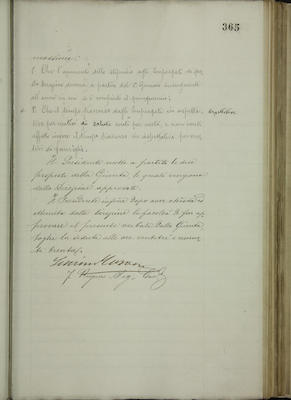 365
massime:
1. Che l'aumento dello stipendio agli impiegati
decorra a partire dal 1º Gennaio susseguente
all'anno in cui si è compiuto il quinquennio;
2. Che il tempo trascorso dagli impiegati in aspettativa
per motivi di salute conti per metà, e non conti
affatto invece il tempo trascorso in aspettativa per mo-
tivi di famiglia.
Il Presidente mette a partito le due
proposte della Giunta, le quali vengono
dalla approvate.
Il Presidente infine dopo aver chiesto ed
ottenuto dalla la facoltà di far ap-
provare il presente verbale dalla Giunta,
toglie la seduta alle ore ventidue e minu-
ti trenta.